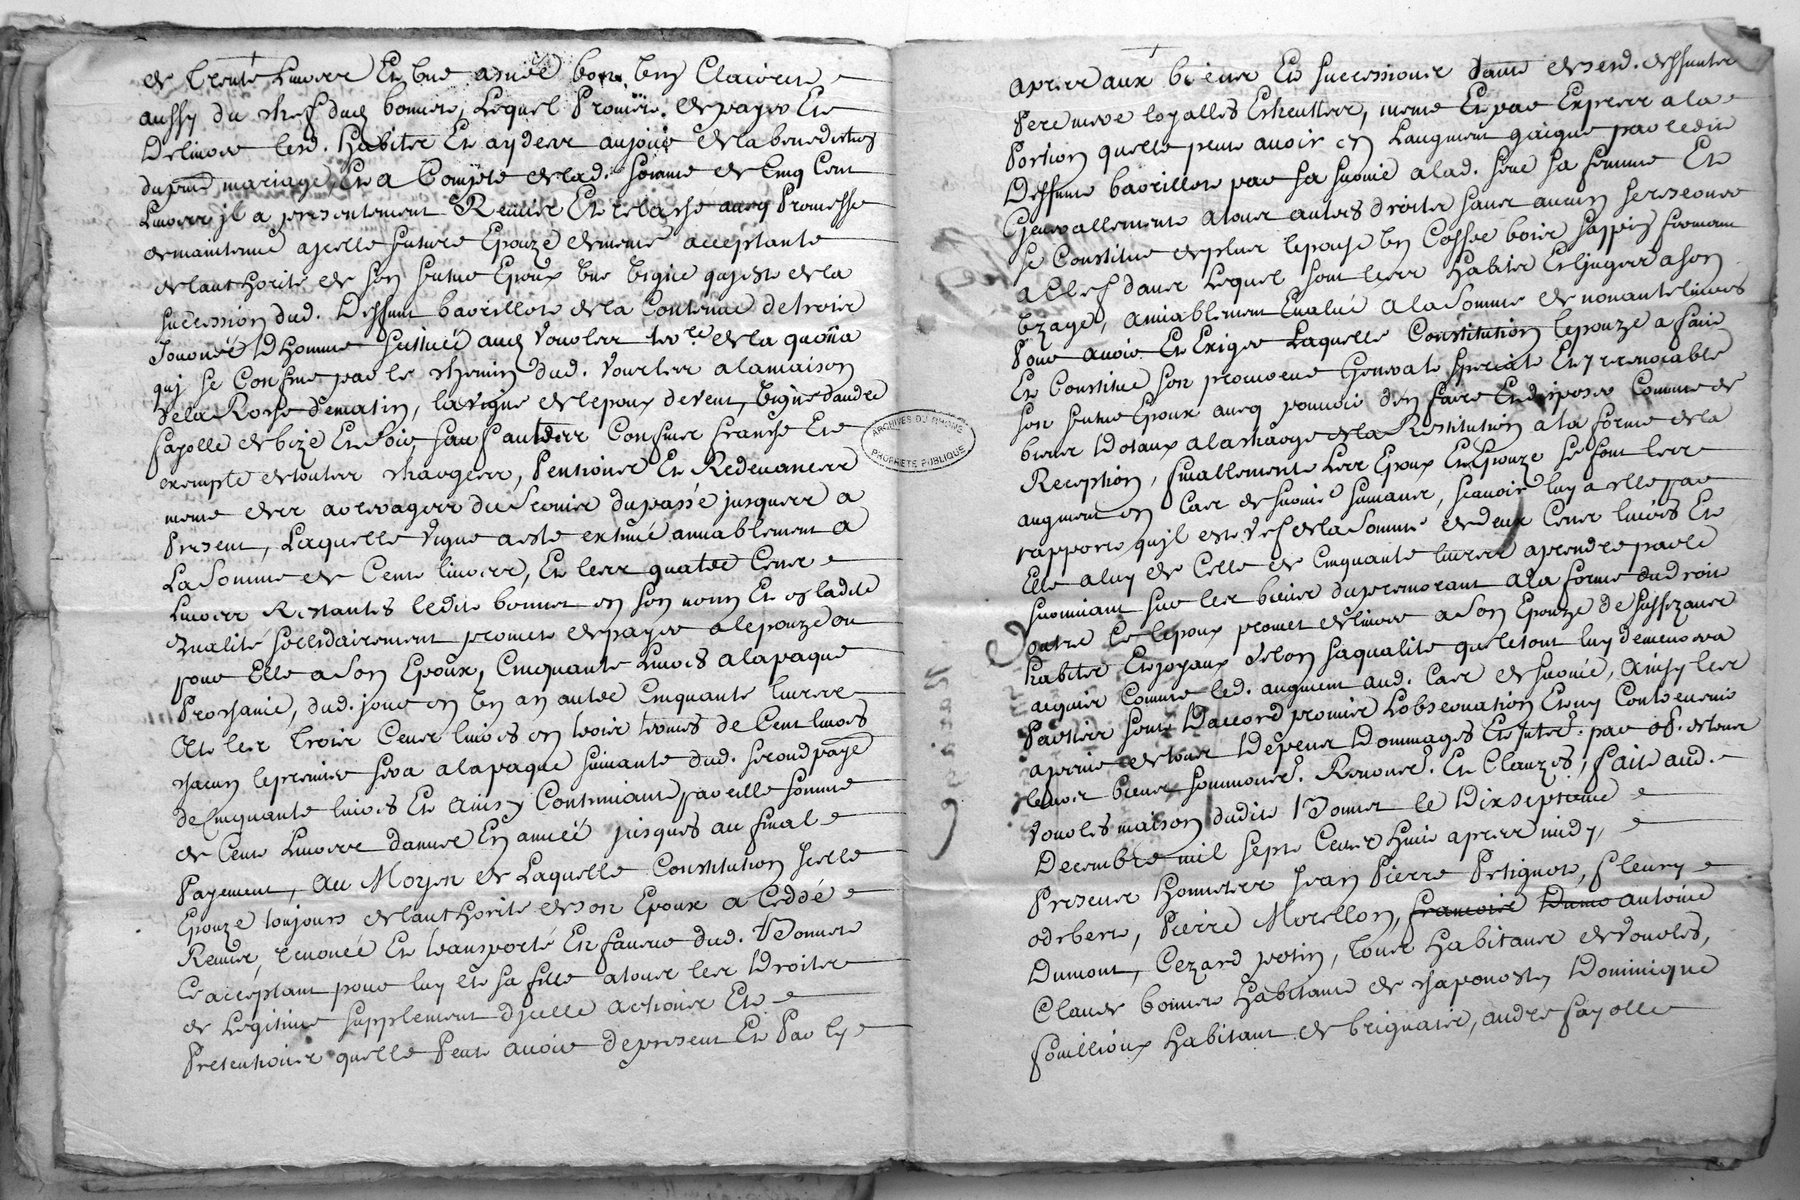 de trente livres Et une asnée bon vin Clairet
aussy du chef dud bonnet, Lequel Promet de payer Et
Delivrer lesd. habits Et ayder au jour de la benediction
du pnt mariage, Et a Compte de lad. somme de Cinq Cent
Livres il a presentement Remis Et relaché avec Promesse
de maintenir a jcelle future Epouze de meme acceptante
de lauthorité de son futur Epoux une vigne qujeste de la
succession dud. Deffunt bavrillon de la Contenue de trois
Journée d'homme scittuée aud vourles de la
quj se Confine par le chemin dud. vourles a la maison
de la Roche de matin, la vigne de lepoux de vent, vigne d'andré
fayolle de bize Et soir sauf autres Confins franche Et
exempte de toutes charges, Pentions Et Redevances
meme des arrerages du servis du passé jusques a
Present, Laquelle vigne a esté extimé amiablement a
La Somme de Cent livres, Et les quatre Cens
Livres Restantes ledit bonnet en son nom Et es ladite
qualité sollidairement promet de payer a lepouze ou
pour Elle a son Epoux, Cinquante Livres a la paque
Prochaine, dud. jour en un an autre Cinquante livres
Et les trois Cens livres en trois termes de Cent livres
chacun le premier sera a la paque suivante dud. second paye
de Cinquante livres Et ainsy Continuant pareille somme
de Cent Livres d'année En année jusques au final
Payement, Au Moyen de Laquelle Constitution Jcelle
Epouze toujours de lauthorité de son Epoux a Ceddé
Remis, renoncé Et transporté En faveur dud. Bonnet
Ce acceptant pour luy Et sa fille a tous les Droits
de Legitime supplement d'jcelle actions Et
Pretentions quelle Peut avoir de present Et Par Cy
ARCHIVES DU RHONE
PROPRIETE PUBLIQUE
apres aux biens Et successions tant de sesd. deffunts
Pere mere loyalles Escheuttes, meme Et par Exprès a la
Portion quelle peut avoir en Laugment gaigné par ledit
Deffunt bavrillon par sa survie a lad. feue sa femme Et
Generallement a tous autres droits sans aucun se reserver
se Constitue de plus lepouse un Coffre bois sappin fermant
a Clef dans Lequel sont les habits Et linges a son
uzage, amiablement Evalué a la Somme de nonante livres
Pour avoir Et Exiger Laquelle Constitution lepouze a fait
Et Constitué son procureur General special Et jrrevocable
son futur Epoux avec pouvoir d'en faire Et disposer Comme de
biens Dotaux a la charge de la Restitution a la forme de la
Reception, finallement Les Epoux Et Epouze se sont fere
augment en Cas de survie suivans, scavoir luy a elle par
rapport quil est vef de la Somme de deux Cens livres Et
Elle a luy de Celle de Cinquante livres a prendre par le
survivant sur les biens du premorant a la forme du droit
outre Ce lepoux promet de livrer a son Epouze de susseans
habits Et joyaux selon sa qualité quels tout luy demeurera
acquis Comme led. augment aud. Cas de survie, ainsy les
Parties sont D'accord promis L'observation Et ny Contrevenir
a peine de tous Depens Dommages Et Jnter. par ob. de tous
leurs biens soummons. Renonc. Et Clauzes, fait aud.
vourles maison dudit Bonnet le Dixseptieme
Decembre mil sept Cens huit apres midy,
Presens honnetes Jean Pierre Petignot, fleury
odebert, Pierre Morellon, francois Dumo antoine
Dumont, Cezard potin, tous habitans de vourles,
Claude bonnet habitant de chaponost, Dominique
fouillioux habitant de brignais, andre fayolle